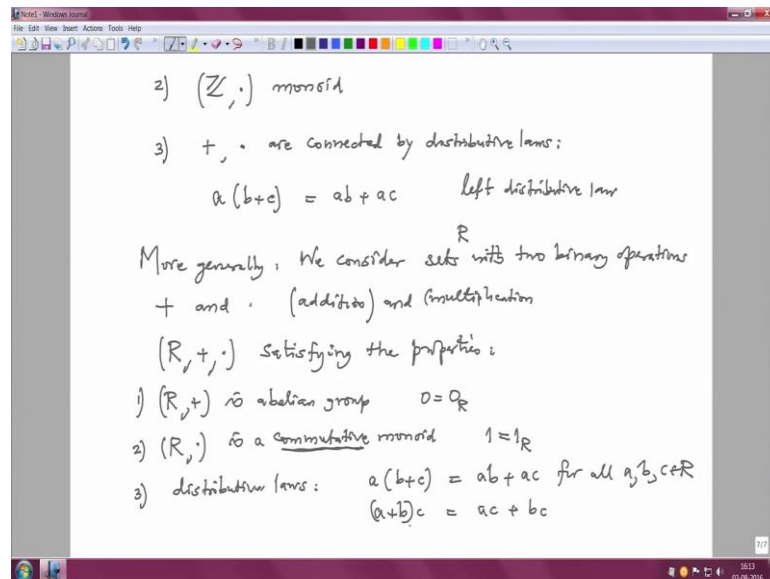 Note1 - Windows Journal
File Edit View Insert Actions Tools Help
2) (ℤ, ·) monoid
3) +, · are connected by distributive laws:
a(b+c) = ab + ac left distributive law
R
More generally: We consider sets with two binary operations
+ and · (addition) and (multiplication
(R, +, ·) satisfying the properties:
1) (R, +) is abelian group 0 = 0_R
2) (R, ·) is a commutative monoid 1 = 1_R
3) distributive laws: a(b+c) = ab + ac for all a, b, c ∈ R
(a+b)c = ac + bc
7/7
16:13
02-08-2016